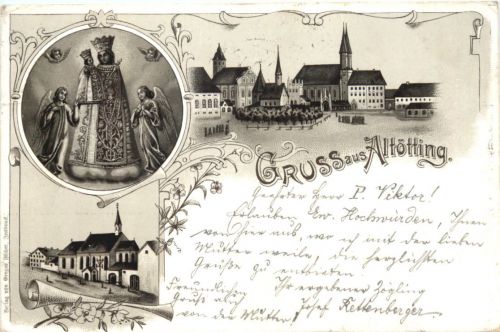 GRUSS aus Altötting.
Geehrter Herr P. Viktor!
Erlauben Ew. Hochwürden, Ihnen
von hier aus, wo ich mit der lieben
Mutter weile, die herzlichsten
Grüße zu entbieten
Ihr ergebener Zögling
Josef Rettenberger
Freundlichen
Gruß auch
von der Mutter!
Verlag von